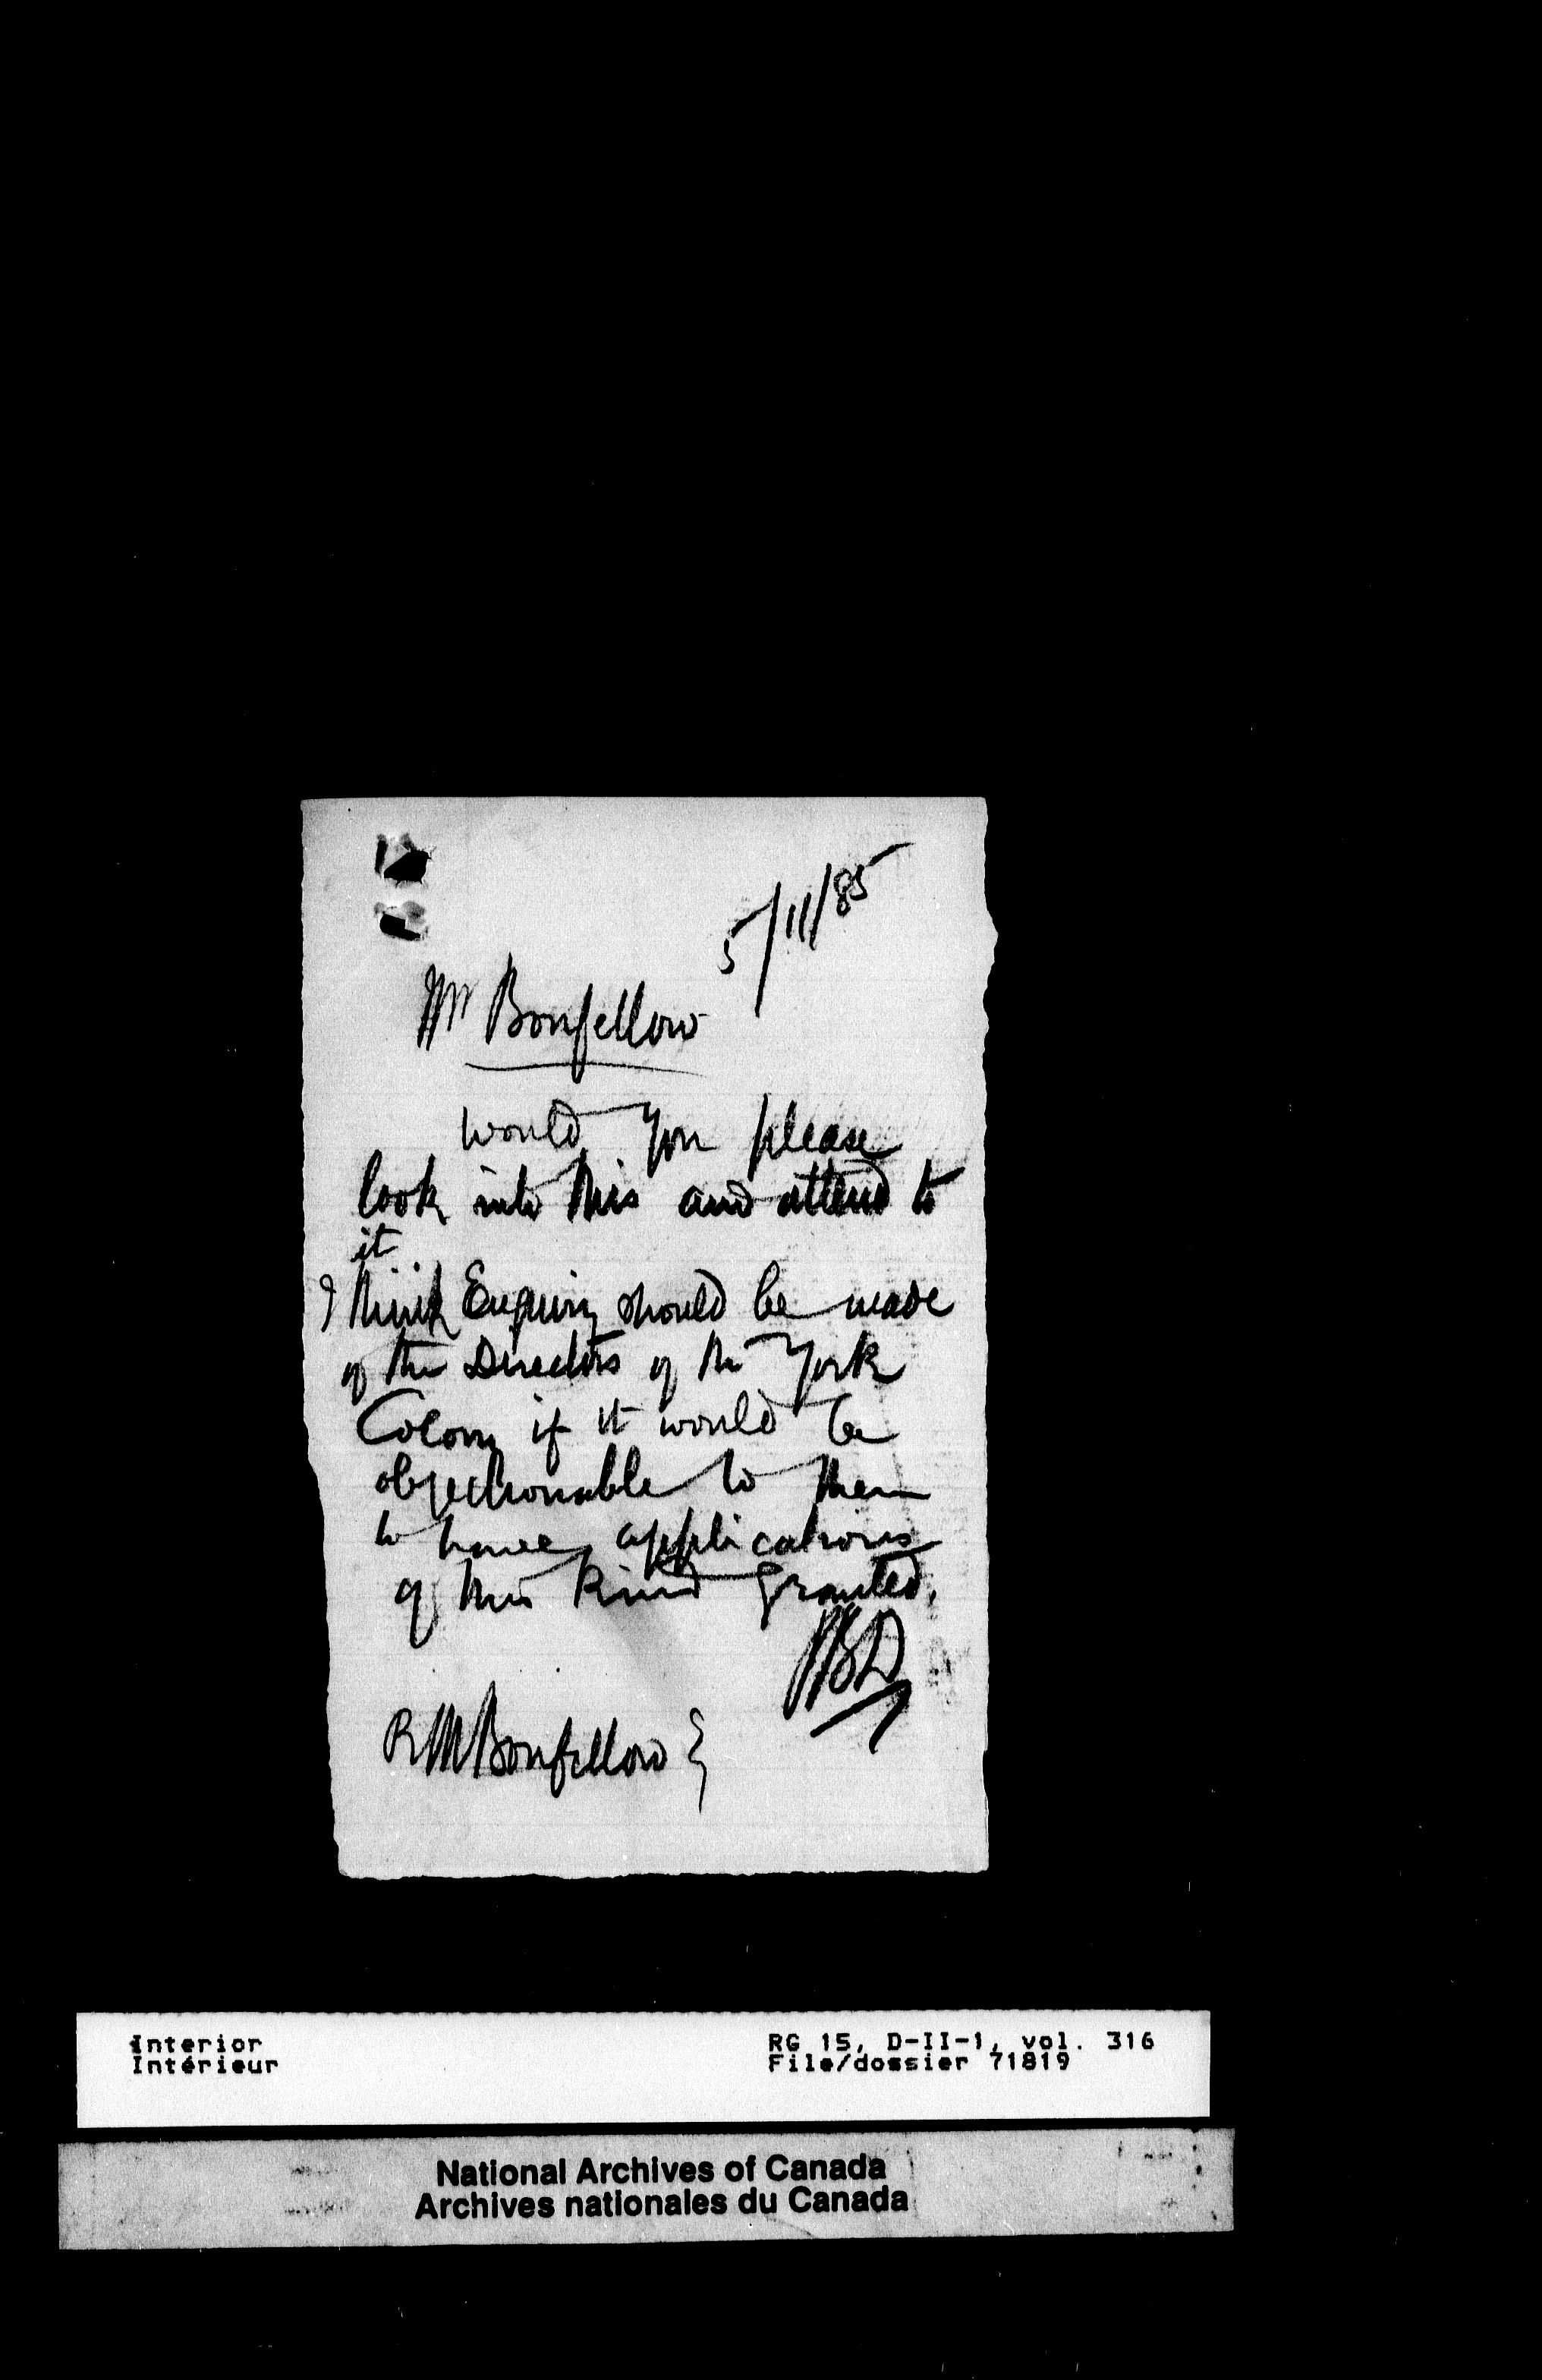 5/11/85
Mr Bonfellow
would you please
look into this and attend to
it
I think Enquiry should be made
of the Directors of the York
Colony if it would be
objectionable to them
to have applications
of this kind granted.
R M Bonfellow
Interior
Intérieur
RG 15, D-II-1, vol. 316
File/dossier 71819
National Archives of Canada
Archives nationales du Canada